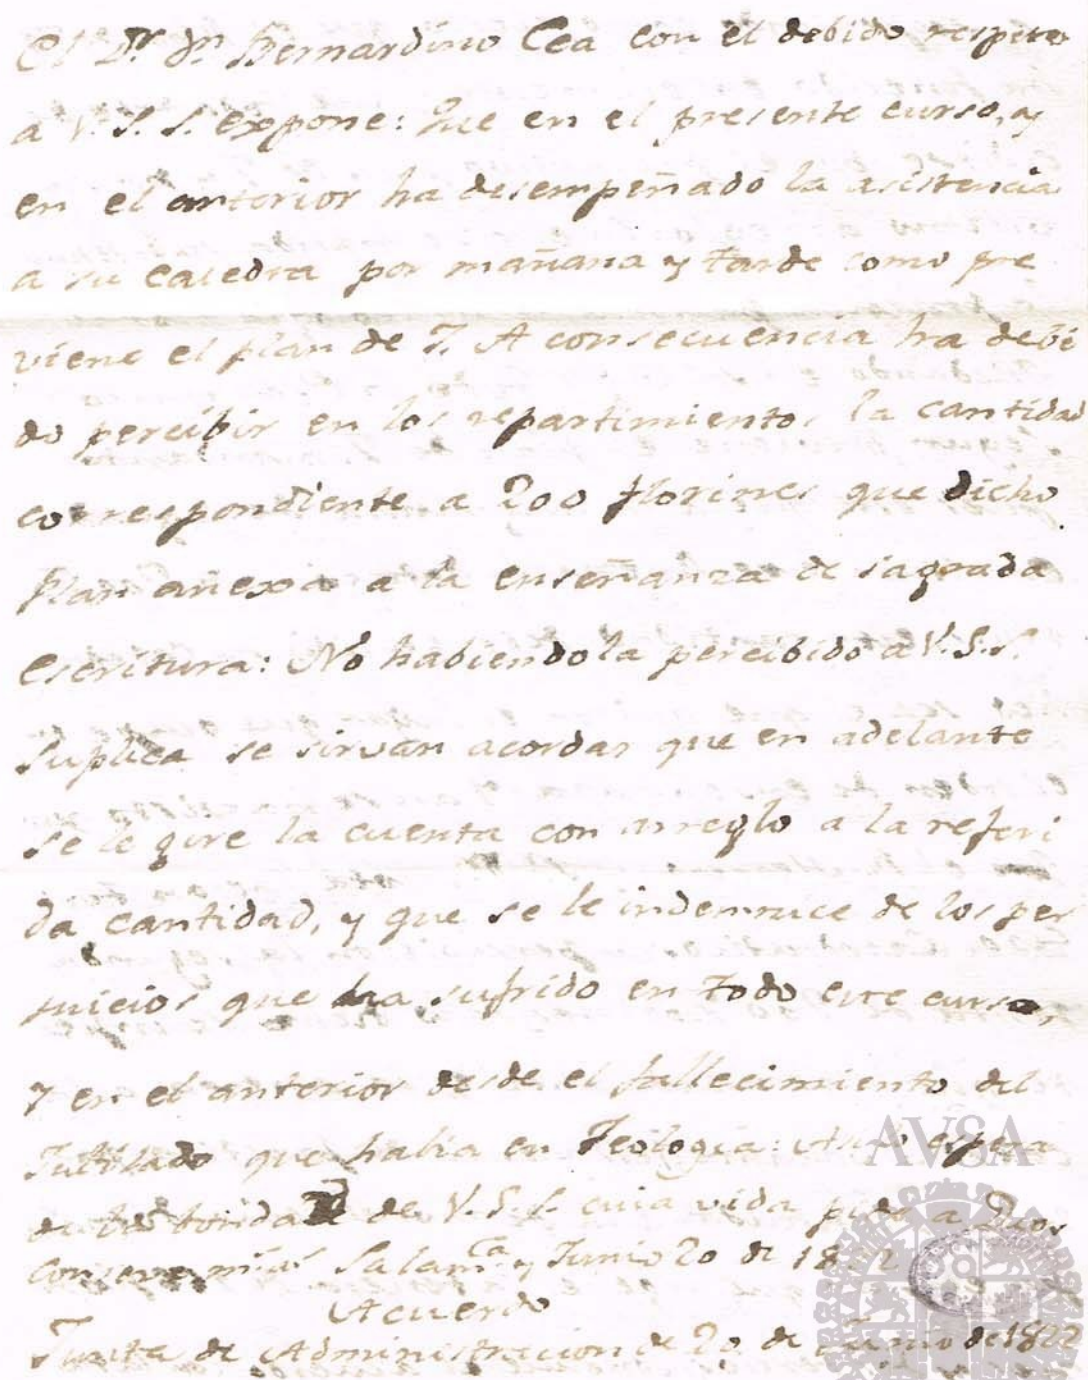 El Dr. Dn. Bernardino Cea con el debido respeto
a V. S. S. expone: Que en el presente curso, y
en el anterior ha desempeñado la asistencia
a su catedra por mañana y tarde como pre
viene el plan de 7. A consecuencia ha debi
do percibir en los repartimientos la cantidad
correspondiente a 200 florines que dicho
Plan anexa a la enseñanza de sagrada
escritura: No habiendola percibido a V.S.S.
Suplica se sirvan acordar que en adelante
se le gire la cuenta con arreglo a la referi
da cantidad, y que se le indemnice de los per
juicios que ha sufrido en todo este curso,
y en el anterior desde el fallecimiento del
Jubilado que habia en Teologia: Asi lo espera
de la bondad de V.S.S. cuia vida pide a Dios
conserve ms. as. Salamca. y Junio 20 de 1822
Acuerdo
Junta de Administracion de 20 de Junio de 1822
AVSA